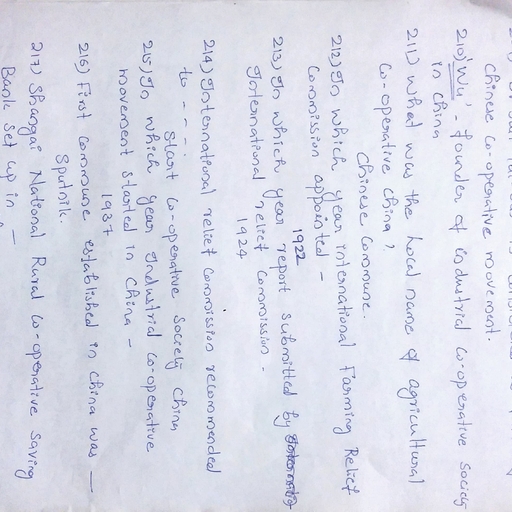 Chinese co-operative movement.
210) 'Wu' - founder of industrial co-operative society
in china
211) What was the Local name of agricultural
co-operative china?
Chinese commune.
212) In which year international Farming Relief
Commission appointed -
1922
213) In which year report submitted by
International relief commission -
1924
214) International relief commission recommended
to - - - - :
Start co-operative society china
215) In which year Industrial co-operative
movement started in china -
1937
216) First commune established in china was —
Sputnik.
217) Shangai National Rural co-operative saving
Bank set up in —